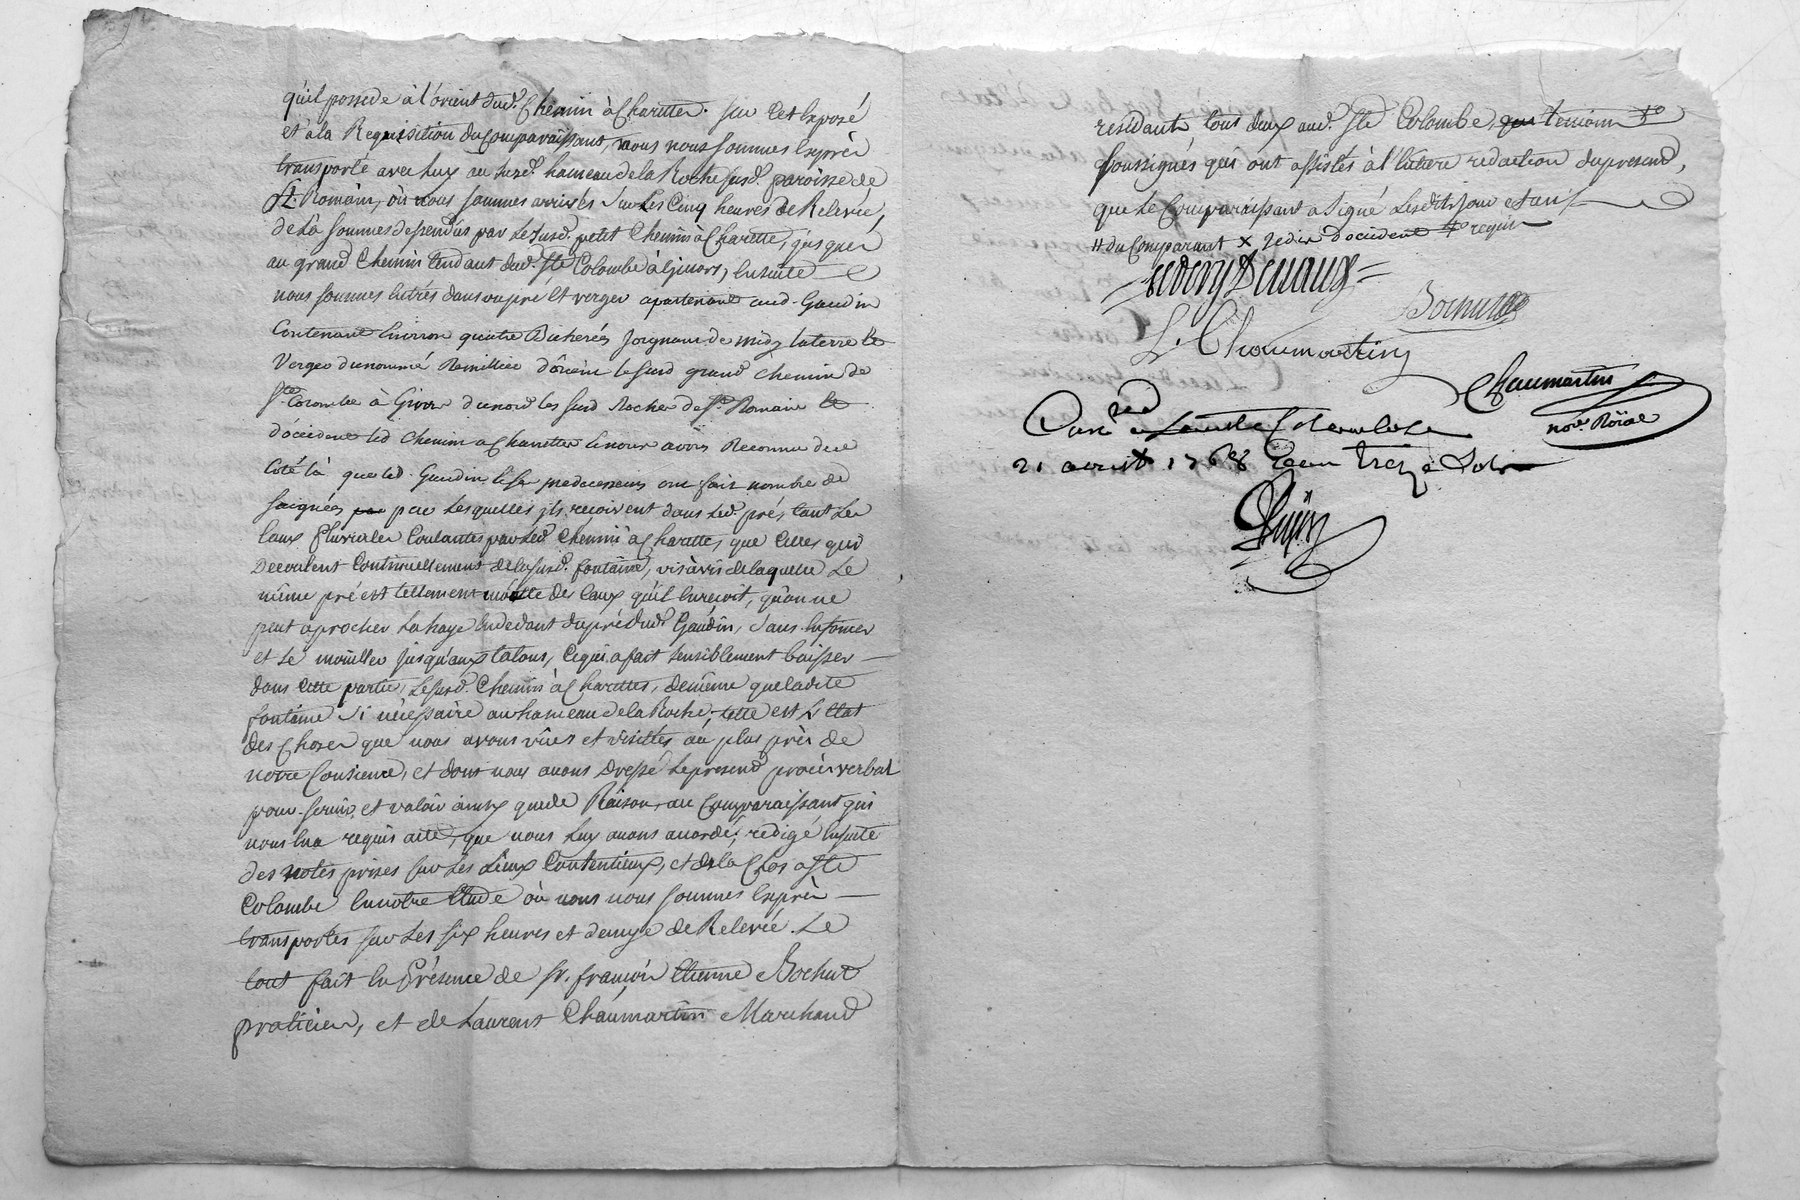 qu'il possede à l'orient dud.t Chemin à Charettes. Sur Cet Exposé
et à la Requisition du comparaissant, nous nous sommes Exprès
transporté avec Luy au susd.t hameau de la Roche susd.t paroisse de
St. Romain, où nous sommes arrivés sur Les Cinq heures de Relevée,
de Là sommes dessendus par Le susd.t petit Chemin à Charette, jusques
au grand Chemin tendant dud.t Ste Colombe à Givors, Ensuite
nous sommes Entrés dans un pré Et verger apartenant aud. Gaudin
Contenant Environ quatre Bicherées Joignant de midy la terre Et
Verger du nommé Remillier d'orient le susd grand chemin de
Ste Colombe à Givors du nord les susd Rocher de St. Romain Et
d'occident led Chemin a Charettes Et nous avons Reconnu de ce
Coté là que led. Gaudin Et ses predecesseurs ont fait nombre de
saignées par Lesquelles jls reçoivent dans Led. pré, tant Les
Eaux Pluviales Coulantes par Led. Chemin à Charette, que Celles qui
Decoulent Continuellement de la susd. fontaine, vis à vis de laquelle Le
même pré est tellement des Eaux qu'il En reçoit, qu'on ne
peut aprocher La haye du pré dud. Gaudin, sans Enfoncer
et se mouiller jusqu'aux talons, Ce qui a fait sensiblement baisser
dans Cette partie, Le susd. Chemin à Charettes, de même que ladite
fontaine si nécessaire au hameau de la Roche; telle est L'Etat
des Choses que nous avons vües et visitées au plus près de
notre Consience, et dont nous avons Dressé Le present procès verbal
pour servir et valoir à que de Raison, au Comparaissant qui
nous En a requis acte, que nous Luy avons accordé, rédigé Ensuite
des notes prises sur Les Lieux Contentieux, et de la Clos a Ste
Colombe En notre Etude où nous nous sommes Exprès
transportés sur Les six heures et demye de Relevée. Le
tout fait En Présence de Sr. françois Etienne Bochut
praticien, et de Laurent Chaumartin Marchand
résidants tous deux aud. Ste Colombe, temoins
soussignés qui ont assistés à l'Entiere redaction du present,
que Le Comparaissant a signé Lesdits jour et an
// du Comparant x d'occident requis
Bochut
L. Chaumartin
Chaumartin
nore. Roïal
red
a Sainte Colombe
21 avril 1768 Reçu treize sols